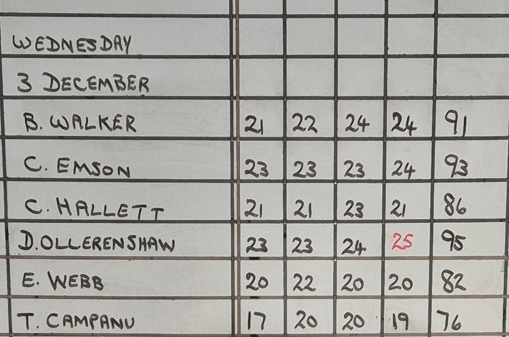 WEDNESDAY
3 DECEMBER
B. WALKER 21 22 24 24 91
C. EMSON 23 23 23 24 93
C. HALLETT 21 21 23 21 86
D. OLLERENSHAW 23 23 24 25 95
E. WEBB 20 22 20 20 82
T. CAMPANU 17 20 20 19 76